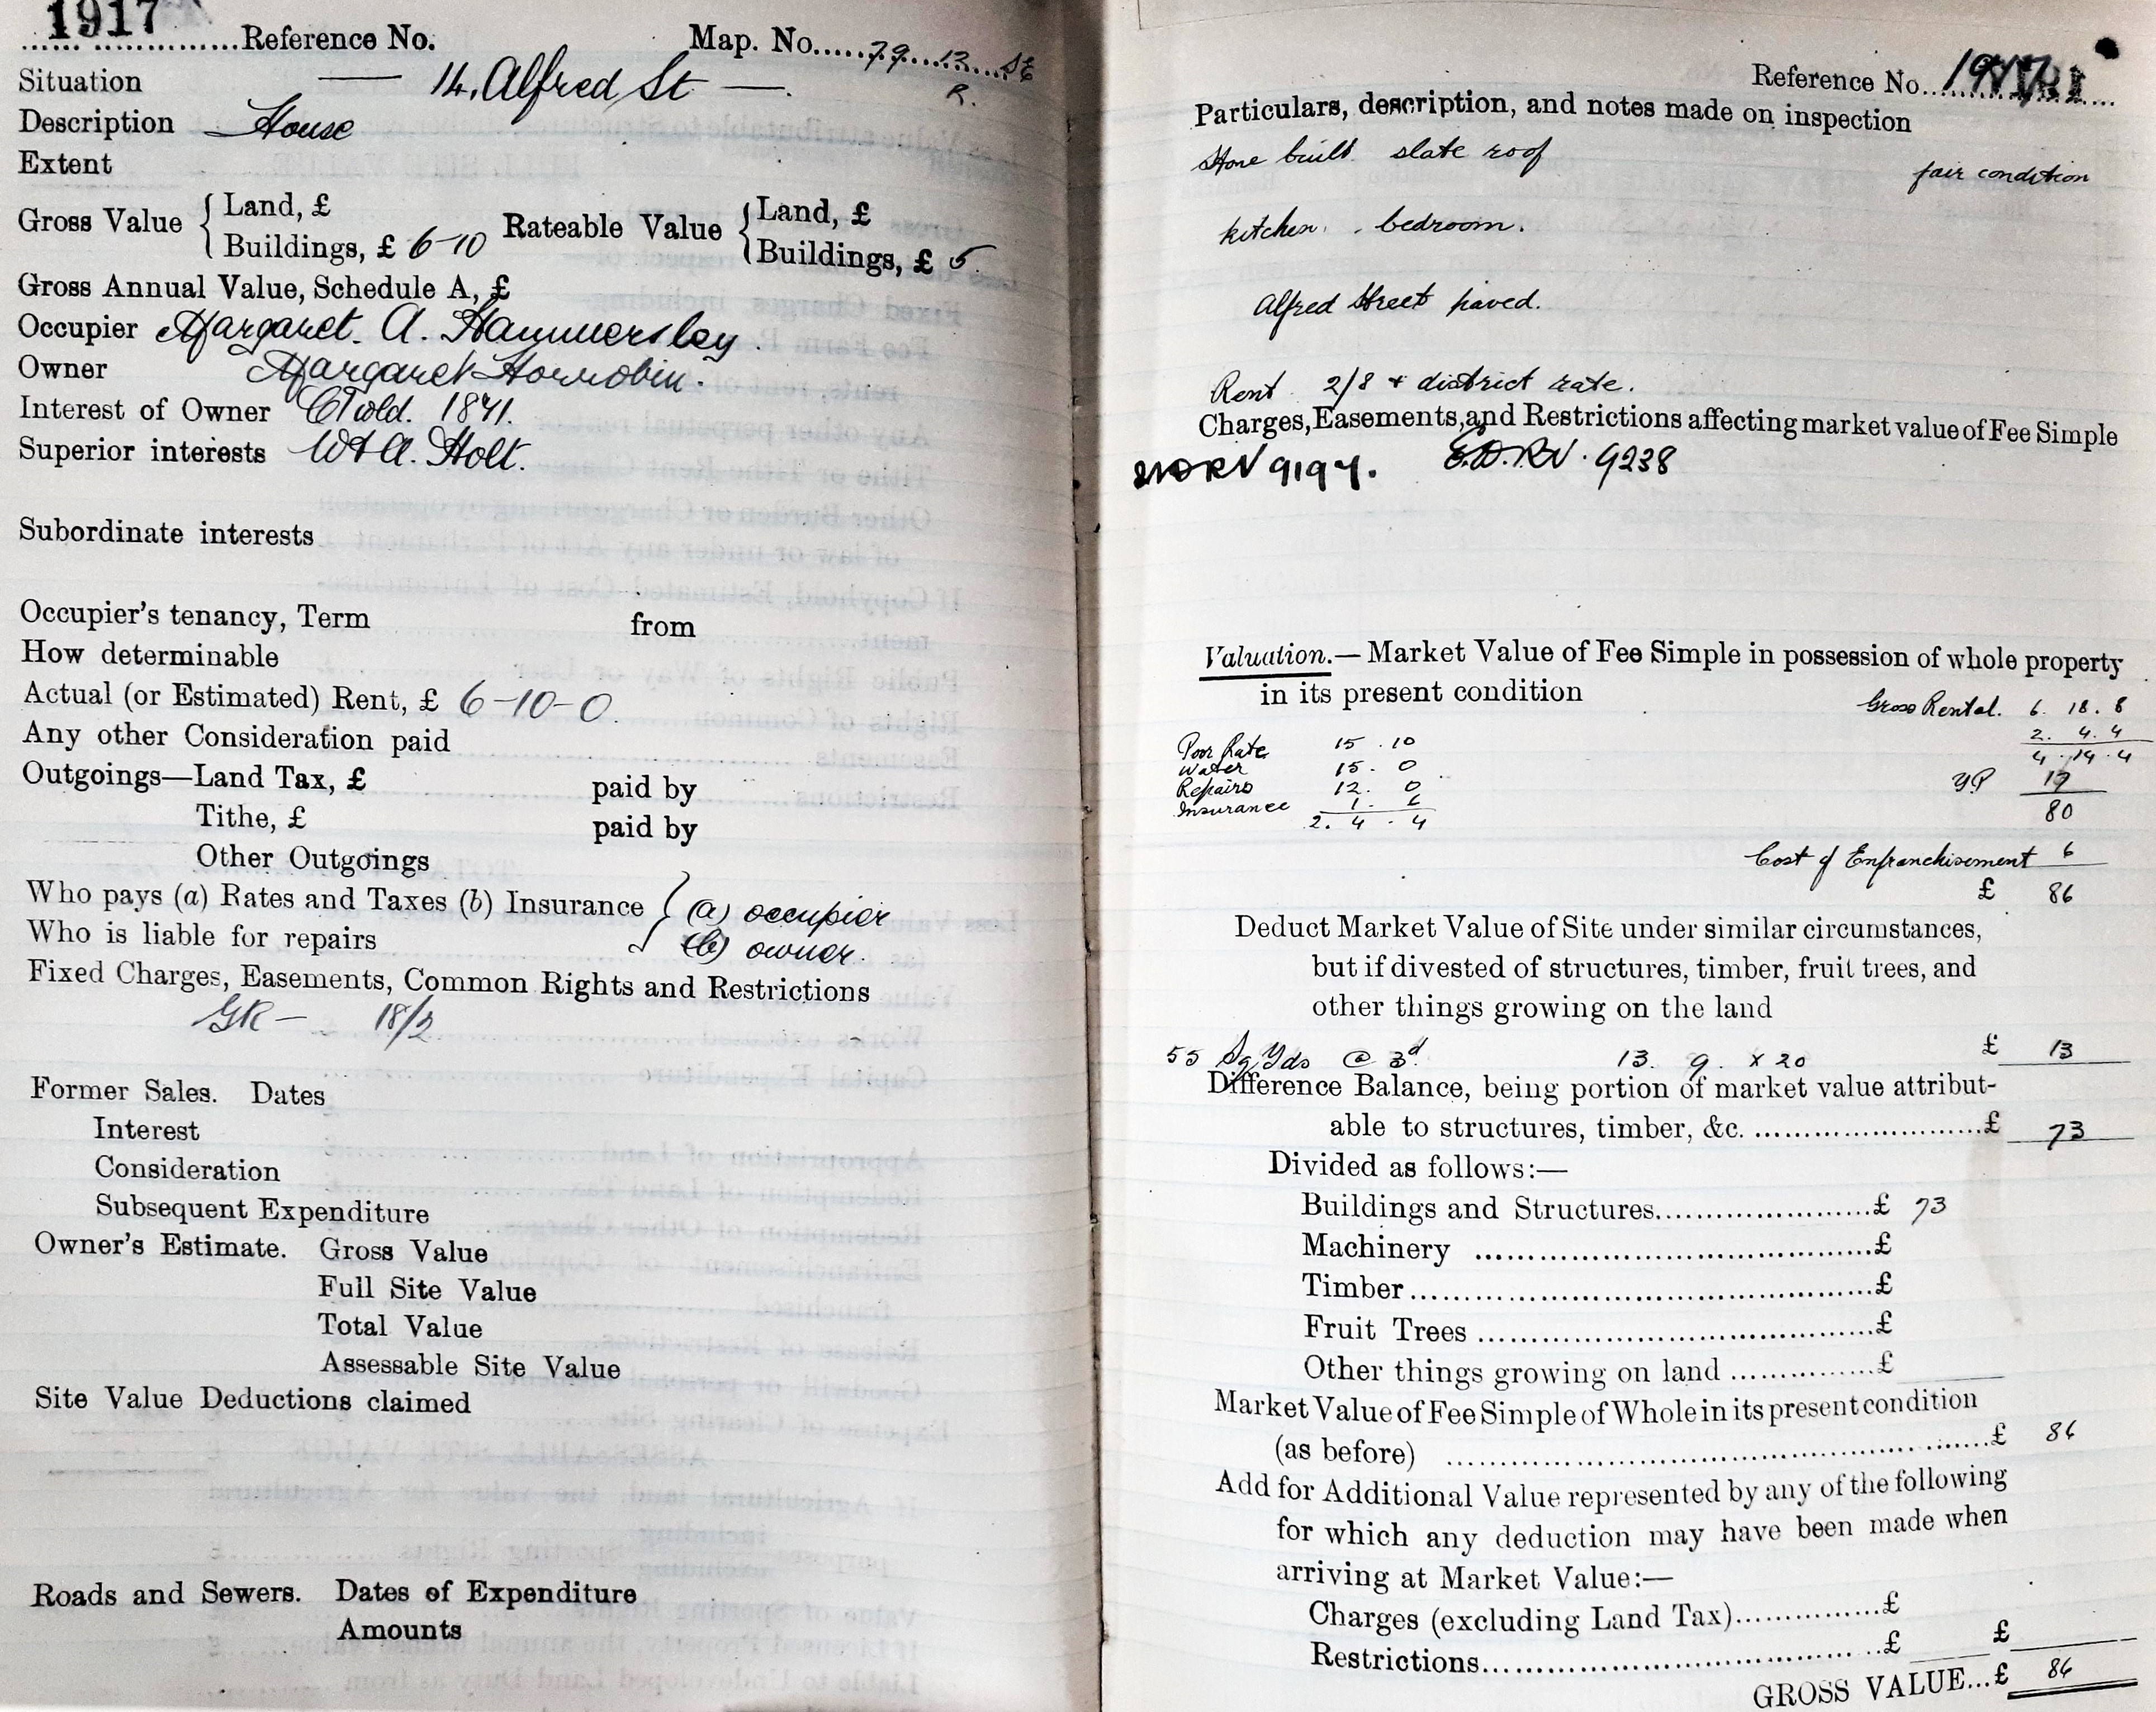 1917
Reference No. Map. No. 79 . 13 . SE
R.
Situation — 14, Alfred St —.
Description House
Extent
Gross Value { Land, £ Rateable Value { Land, £
Buildings, £ 6-10 Buildings, £ 5
Gross Annual Value, Schedule A, £
Occupier Margaret. A. Hammersley.
Owner Margaret Horrobin.
Interest of Owner C'hold. 1871.
Superior interests W & A. Holt.
Subordinate interests
Occupier's tenancy, Term from
How determinable
Actual (or Estimated) Rent, £ 6-10-0.
Any other Consideration paid
Outgoings—Land Tax, £ paid by
Tithe, £ paid by
Other Outgoings
Who pays (a) Rates and Taxes (b) Insurance } (a) occupier
Who is liable for repairs (b) owner.
Fixed Charges, Easements, Common Rights and Restrictions
GR — 18/2
Former Sales. Dates
Interest
Consideration
Subsequent Expenditure
Owner's Estimate. Gross Value
Full Site Value
Total Value
Assessable Site Value
Site Value Deductions claimed
Roads and Sewers. Dates of Expenditure
Amounts
Reference No.
Particulars, description, and notes made on inspection
Stone built. slate roof
fair condition
kitchen. . bedroom.
Alfred Street paved.
Rent 2/8 + district rate.
Charges, Easements, and Restrictions affecting market value of Fee Simple
9197. 9238
Valuation.— Market Value of Fee Simple in possession of whole property
in its present condition
Gross Rental. 6. 18. 8
2. 4. 4
4. 14. 4
Poor Rate 15 . 10
Water 15. 0
Repairs 12. 0
Insurance 1. 6
2. 4 . 4
YP 17
80
Cost of Enfranchisement 6
£ 86
Deduct Market Value of Site under similar circumstances,
but if divested of structures, timber, fruit trees, and
other things growing on the land
55 Sq Yds @ 3d 13. 9. x 20 £ 13
Difference Balance, being portion of market value attribut-
able to structures, timber, &c. £ 73
Divided as follows:—
Buildings and Structures £ 73
Machinery £
Timber £
Fruit Trees £
Other things growing on land £
Market Value of Fee Simple of Whole in its present condition
(as before) £ 86
Add for Additional Value represented by any of the following
for which any deduction may have been made when
arriving at Market Value:—
Charges (excluding Land Tax) £
Restrictions £ £
GROSS VALUE...£ 86